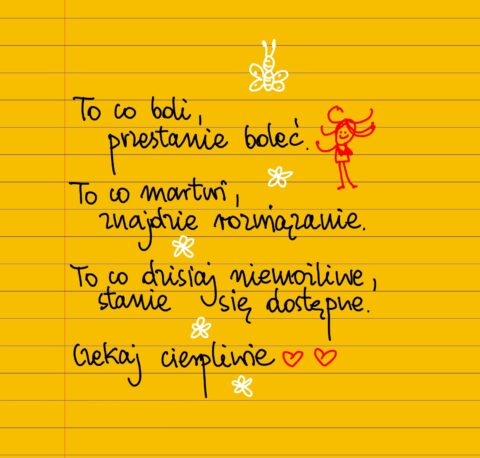 To co boli,
przestanie boleć.
To co martwi,
znajdzie rozwiązanie.
To co dzisiaj niemożliwe,
stanie się dostępne.
Czekaj cierpliwie